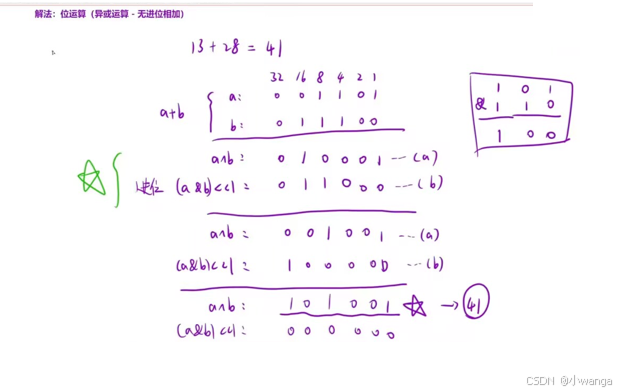 解法：位运算（异或运算 - 无进位相加）
13 + 28 = 41
32 16 8 4 2 1
a+b
a: 0 0 1 1 0 1
b: 0 1 1 1 0 0
a^b: 0 1 0 0 0 1 --- (a)
进位 (a&b)<<1: 0 1 1 0 0 0 --- (b)
a^b: 0 0 1 0 0 1 --- (a)
(a&b)<<1: 1 0 0 0 0 0 --- (b)
a^b: 1 0 1 0 0 1 → 41
(a&b)<<1: 0 0 0 0 0 0
1 0 1
& 1 1 0
1 0 0
CSDN @小wanga